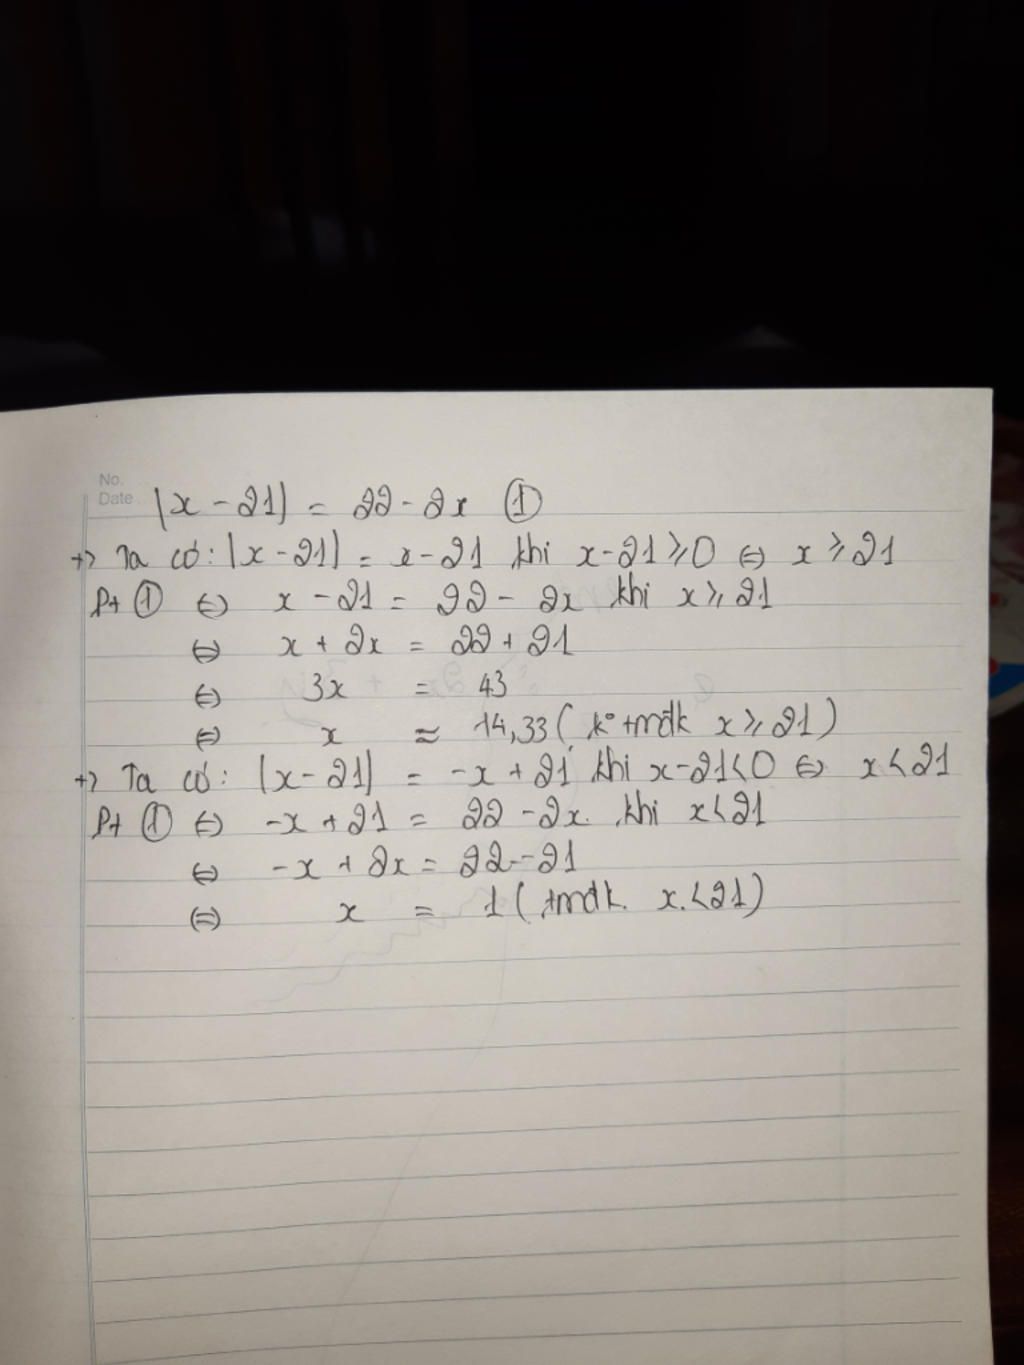 No.
Date
|x - 21| = 22 - 2x ①
+> Ta có: |x - 21| = x - 21 khi x - 21 ⩾ 0 ⇔ x ⩾ 21
Pt ① ⇔ x - 21 = 22 - 2x khi x ⩾ 21
⇔ x + 2x = 22 + 21
⇔ 3x = 43
⇔ x ≈ 14,33 ( k° tmđk x ⩾ 21)
+> Ta có: |x - 21| = -x + 21 khi x - 21 < 0 ⇔ x < 21
Pt ① ⇔ -x + 21 = 22 - 2x. khi x < 21
⇔ -x + 2x = 22 - 21
⇔ x = 1 ( tmđk. x. < 21)